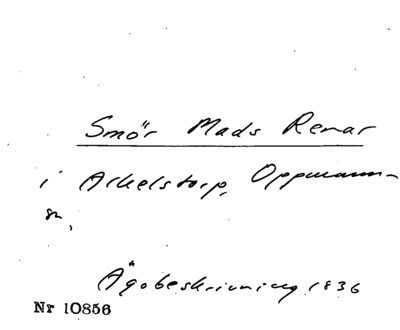 Smör Mads Renar
i Arkelstorp, Oppmann-
sn,
Ägobeskrivning 1836
Nr 10856